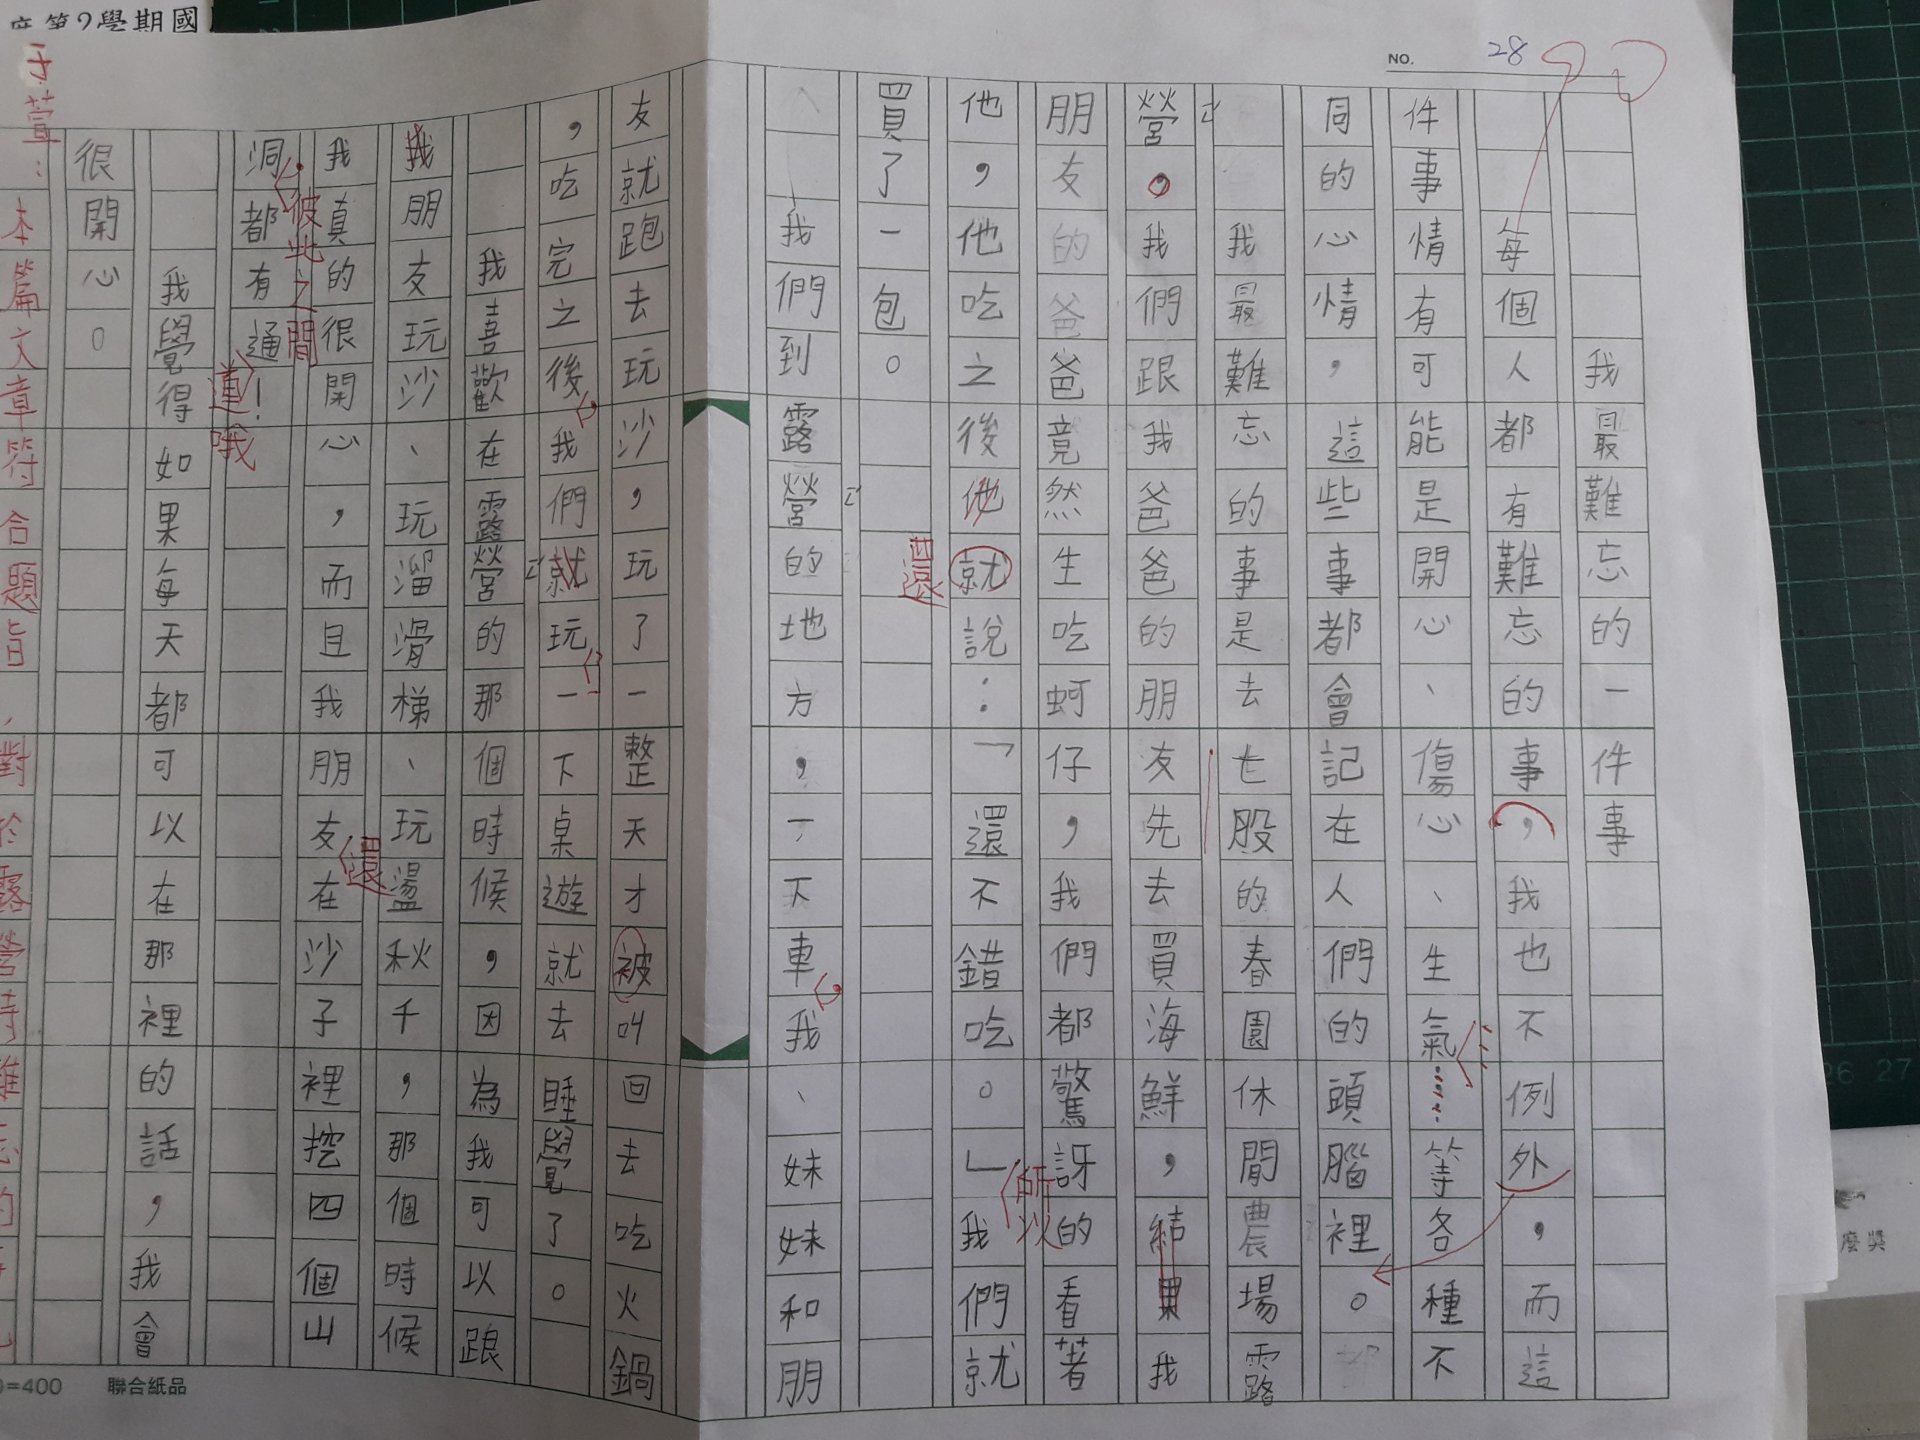 度第2學期國
NO. 28
我最難忘的一件事
每個人都有難忘的事，我也不例外，而這
件事情有可能是開心、傷心、生氣……等各種不
同的心情，這些事都會記在人們的頭腦裡。
我最難忘的事是去七股的春園休閒農場露
營，我們跟我爸爸的朋友先去買海鮮，結果我
朋友的爸爸竟然生吃蚵仔，我們都驚訝的看著
他，他吃之後他就說：「還不錯吃。」我們就
買了一包。
我們到露營的地方，一下車我、妹妹和朋
友就跑去玩沙，玩了一整天才被叫回去吃火鍋
，吃完之後我們就玩一下桌遊就去睡覺了。
我喜歡在露營的那個時候，因為我可以跟
我朋友玩沙、玩溜滑梯、玩盪秋千，那個時候
我真的很開心，而且我朋友在沙子裡挖四個山
洞都有通！
我覺得如果每天都可以在那裡的話，我會
很開心。
所以
還
還
彼此之間
道哦
子萱：本篇文章符合題旨，對於露營時難忘的
=400 聯合紙品
26 27